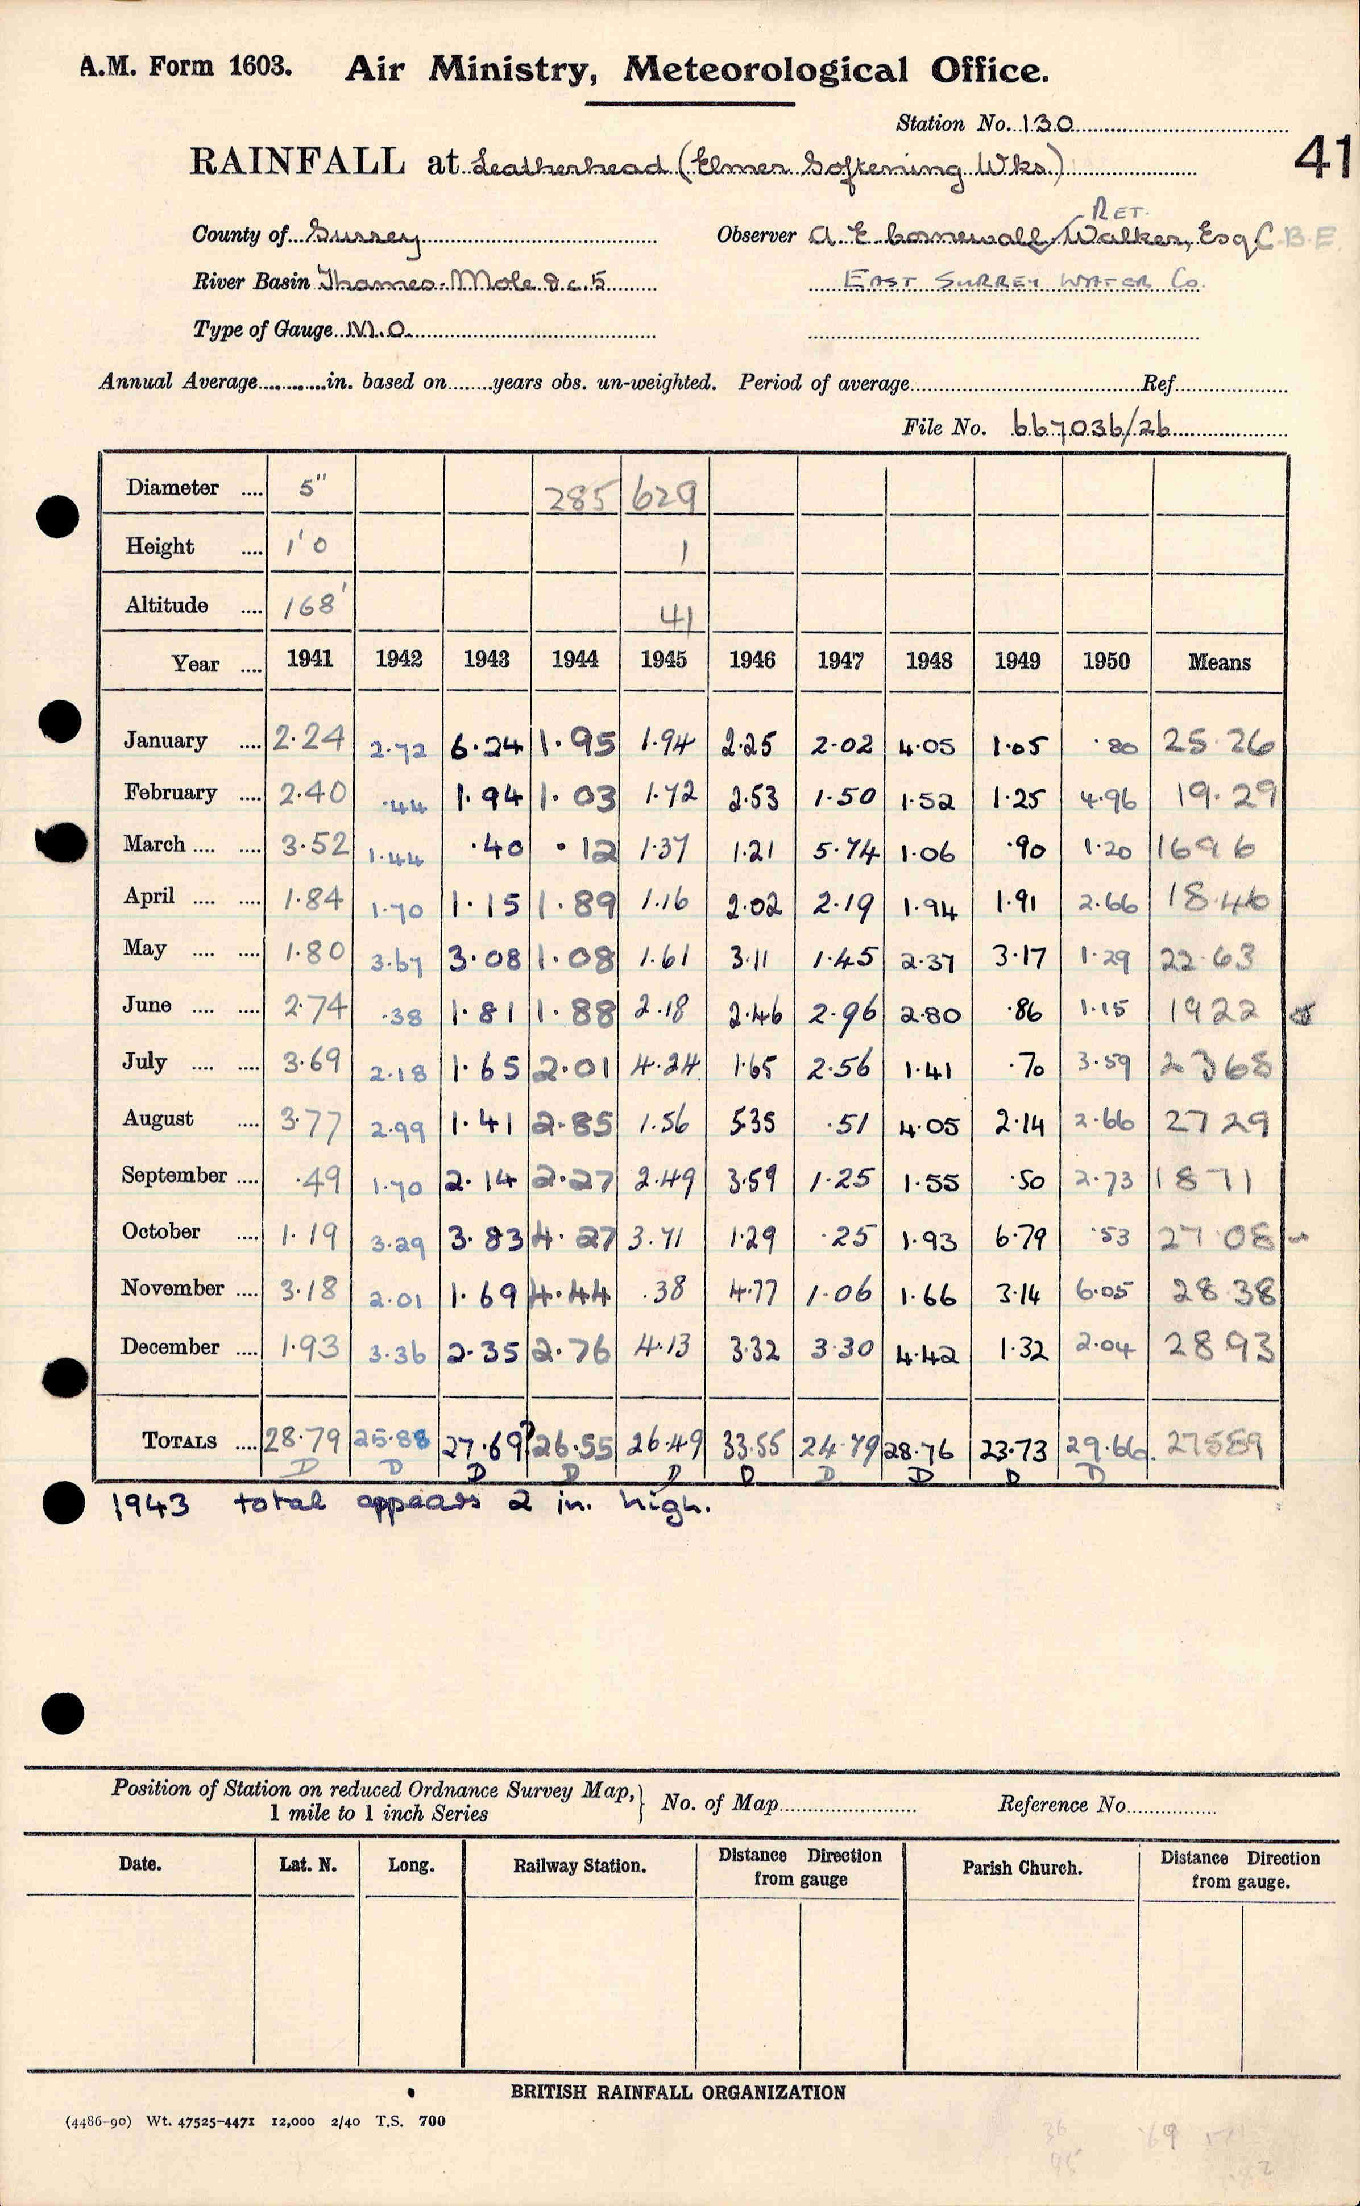 A.M. Form 1603. Air Ministry, Meteorological Office.
Station No. 130
41
RAINFALL at Leatherhead (Elmer Softening Wks)
RET.
County of Surrey Observer A E Cornewall Walker, Esq C.B.E.
River Basin Thames-Mole &c. 5 EAST SURREY WATER Co.
Type of Gauge M.O.
Annual Average in. based on years obs. un-weighted. Period of average Ref.
File No. 667036/26
Diameter 5" 285 629
Height 1'0 1
Altitude 168' 41
Year 1941 1942 1943 1944 1945 1946 1947 1948 1949 1950 Means
January 2.24 2.72 6.24 1.95 1.94 2.25 2.02 4.05 1.05 .80 25.26
February 2.40 .44 1.94 1.03 1.72 2.53 1.50 1.52 1.25 4.96 19.29
March 3.52 1.44 .40 .12 1.37 1.21 5.74 1.06 .90 1.20 1696
April 1.84 1.70 1.15 1.89 1.16 2.02 2.19 1.94 1.91 2.66 18.46
May 1.80 3.67 3.08 1.08 1.61 3.11 1.45 2.37 3.17 1.29 22.63
June 2.74 .38 1.81 1.88 2.18 2.46 2.96 2.80 .86 1.15 1922
July 3.69 2.18 1.65 2.01 4.24 1.65 2.56 1.41 .70 3.59 2368
August 3.77 2.99 1.41 2.85 1.56 5.35 .51 4.05 2.14 2.66 2729
September .49 1.70 2.14 2.27 2.49 3.59 1.25 1.55 .50 2.73 1871
October 1.19 3.29 3.83 4.27 3.71 1.29 .25 1.93 6.79 .53 27.08
November 3.18 2.01 1.69 4.44 .38 4.77 1.06 1.66 3.14 6.05 28.38
December 1.93 3.36 2.35 2.76 4.13 3.32 3.30 4.42 1.32 2.04 2893
TOTALS 28.79 25.88 27.69? 26.55 26.49 33.55 24.79 28.76 23.73 29.66 27589
D D D D D D D D D D
1943 total appears 2 in. high.
Position of Station on reduced Ordnance Survey Map, 1 mile to 1 inch Series } No. of Map Reference No.
Date. Lat. N. Long. Railway Station. Distance from gauge Direction Parish Church. Distance Direction from gauge.
BRITISH RAINFALL ORGANIZATION
(4486-90) Wt. 47525-4471 12,000 2/40 T.S. 700